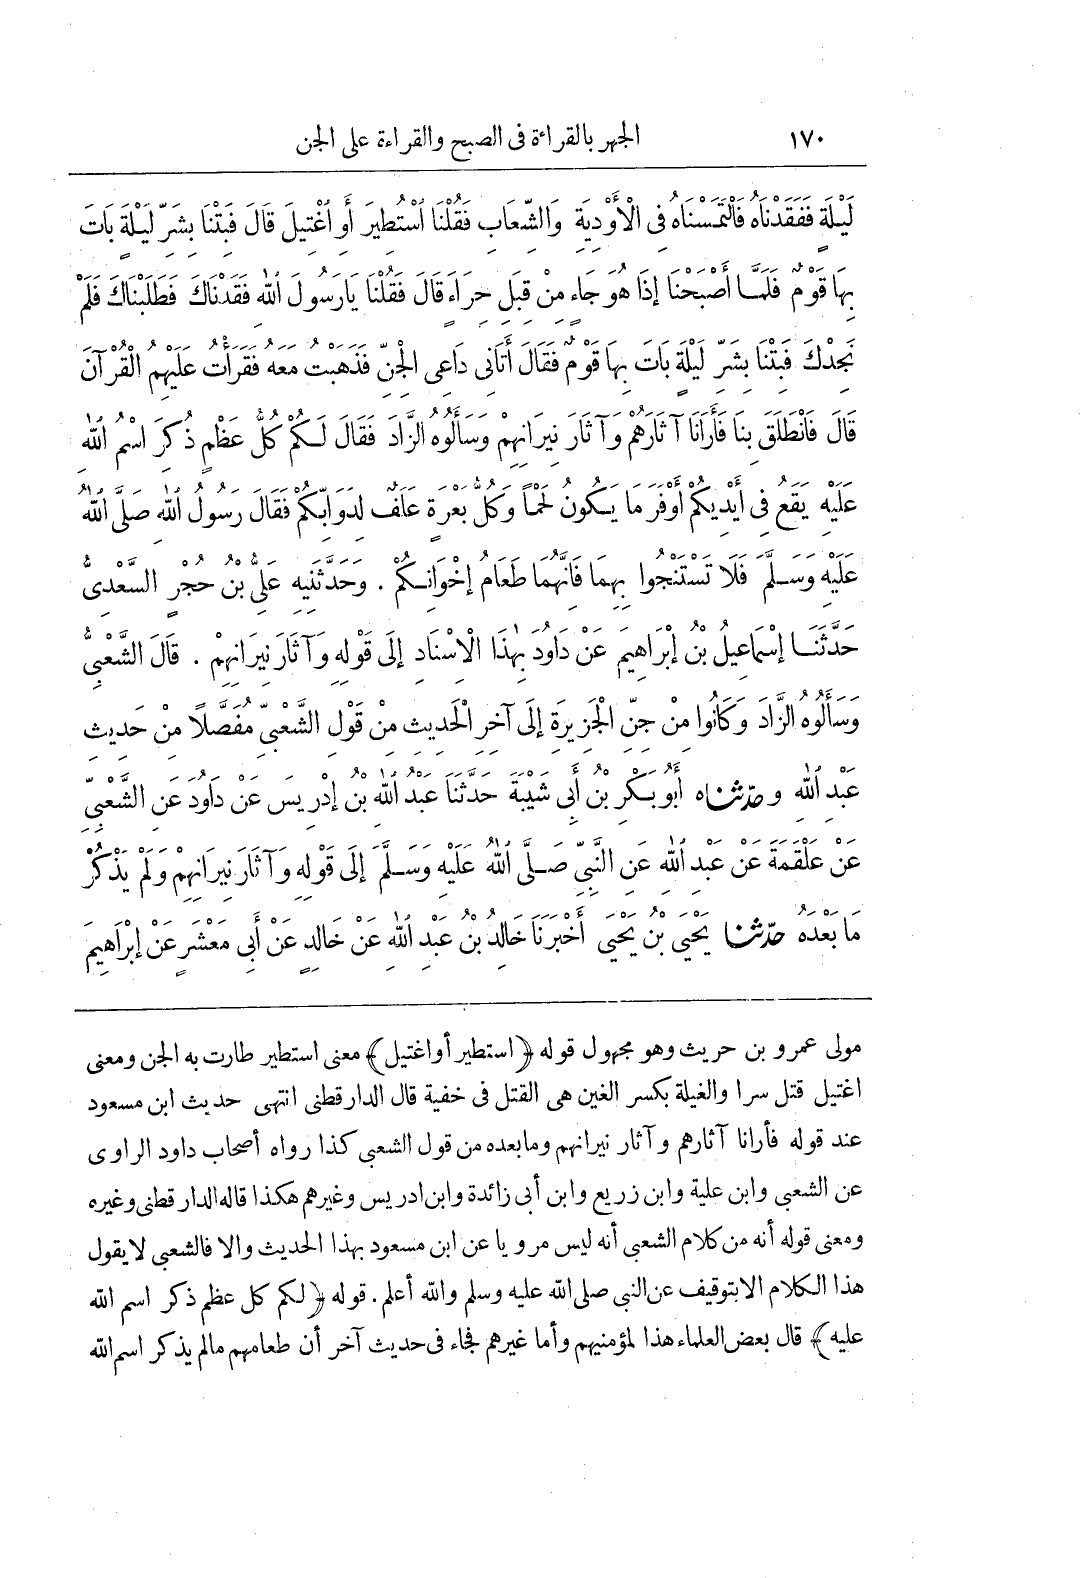 ١٧٠ الجهر بالقراءة فى الصبح والقراءة على الجن
لَيْلَةٍ فَفَقَدْنَاهُ فَالْتَمَسْنَاهُ فِى الْأَوْدِيَةِ وَالشِّعَابِ فَقُلْنَا اسْتُطِيرَ أَوِ اغْتِيلَ قَالَ فَبِتْنَا بِشَرِّ لَيْلَةٍ بَاتَ
بِهَا قَوْمٌ فَلَمَّا أَصْبَحْنَا إِذَا هُوَ جَاءٍ مِنْ قِبَلِ حِرَاءٍ قَالَ فَقُلْنَا يَارَسُولَ اللهِ فَقَدْنَاكَ فَطَلَبْنَاكَ فَلَمْ
نَجِدْكَ فَبِتْنَا بِشَرِّ لَيْلَةٍ بَاتَ بِهَا قَوْمٌ فَقَالَ أَتَانِى دَاعِى الْجِنِّ فَذَهَبْتُ مَعَهُ فَقَرَأْتُ عَلَيْهِمُ الْقُرْآنَ
قَالَ فَانْطَلَقَ بِنَا فَأَرَانَا آثَارَهُمْ وَآثَارَ نِيرَانِهِمْ وَسَأَلُوهُ الزَّادَ فَقَالَ لَكُمْ كُلُّ عَظْمٍ ذُكِرَ اسْمُ اللهِ
عَلَيْهِ يَقَعُ فِى أَيْدِيكُمْ أَوْفَرَ مَا يَكُونُ لَحْمًا وَكُلُّ بَعْرَةٍ عَلَفٌ لِدَوَابِّكُمْ فَقَالَ رَسُولُ اللهِ صَلَّى اللهُ
عَلَيْهِ وَسَلَّمَ فَلَا تَسْتَنْجُوا بِهِمَا فَإِنَّهُمَا طَعَامُ إِخْوَانِكُمْ . وَحَدَّثَنِيهِ عَلِىُّ بْنُ حُجْرٍ السَّعْدِىُّ
حَدَّثَنَا إِسْمَاعِيلُ بْنُ إِبْرَاهِيمَ عَنْ دَاوُدَ بِهٰذَا الْإِسْنَادِ إِلَى قَوْلِهِ وَآثَارَ نِيرَانِهِمْ . قَالَ الشَّعْبِىُّ
وَسَأَلُوهُ الزَّادَ وَكَانُوا مِنْ جِنِّ الْجَزِيرَةِ إِلَى آخِرِ الْحَدِيثِ مِنْ قَوْلِ الشَّعْبِىِّ مُفَصَّلًا مِنْ حَدِيثِ
عَبْدِ اللهِ وحدّثناه أَبُو بَكْرِ بْنُ أَبِى شَيْبَةَ حَدَّثَنَا عَبْدُ اللهِ بْنُ إِدْرِيسَ عَنْ دَاوُدَ عَنِ الشَّعْبِىِّ
عَنْ عَلْقَمَةَ عَنْ عَبْدِ اللهِ عَنِ النَّبِىِّ صَلَّى اللهُ عَلَيْهِ وَسَلَّمَ إِلَى قَوْلِهِ وَآثَارَ نِيرَانِهِمْ وَلَمْ يَذْكُرْ
مَا بَعْدَهُ حدّثنا يَحْيَى بْنُ يَحْيَى أَخْبَرَنَا خَالِدُ بْنُ عَبْدِ اللهِ عَنْ خَالِدٍ عَنْ أَبِى مَعْشَرٍ عَنْ إِبْرَاهِيمَ
مولى عمرو بن حريث وهو مجهول قوله ﴿استطير أو اغتيل﴾ معنى استطير طارت به الجن ومعنى
اغتيل قتل سرا والغيلة بكسر الغين هى القتل فى خفية قال الدارقطنى انتهى حديث ابن مسعود
عند قوله فأرانا آثارهم وآثار نيرانهم وما بعده من قول الشعبى كذا رواه أصحاب داود الراوى
عن الشعبى وابن علية وابن زريع وابن أبى زائدة وابن ادريس وغيرهم هكذا قاله الدارقطنى وغيره
ومعنى قوله أنه من كلام الشعبى أنه ليس مرويا عن ابن مسعود بهذا الحديث والا فالشعبى لا يقول
هذا الكلام الا بتوقيف عن النبى صلى الله عليه وسلم والله أعلم . قوله ﴿لكم كل عظم ذكر اسم الله
عليه﴾ قال بعض العلماء هذا لمؤمنيهم وأما غيرهم فجاء فى حديث آخر أن طعامهم مالم يذكر اسم الله